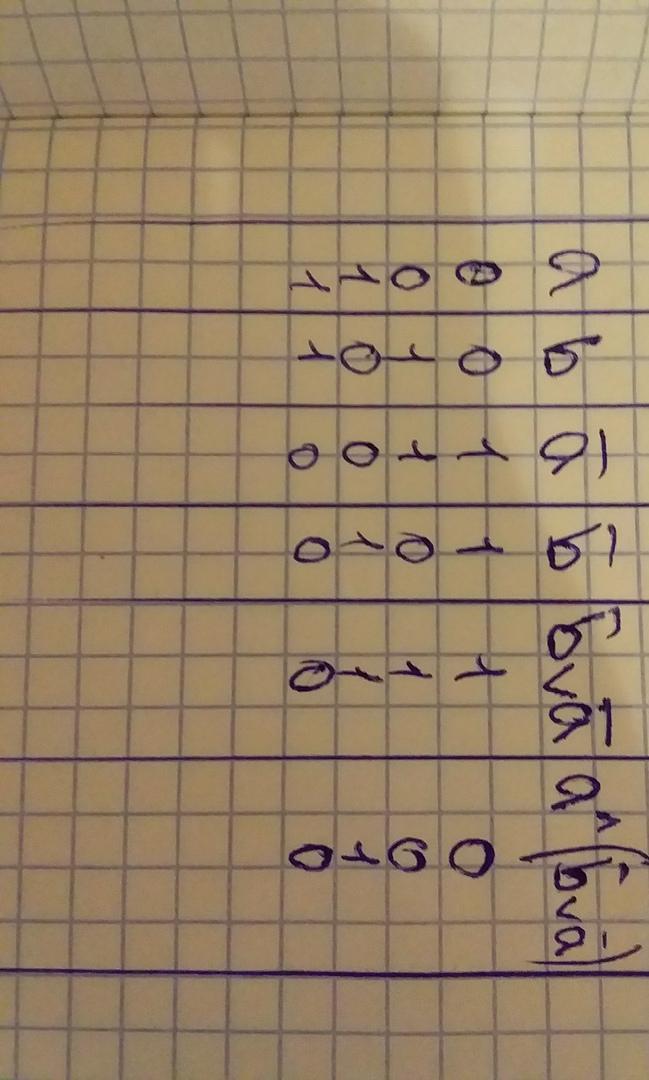 a б a̅ б̅ б̅ ∨ a̅ a ∧ (б̅ ∨ a̅)
0 0 1 1 1 0
0 1 1 0 1 0
1 0 0 1 1 1
1 1 0 0 0 0